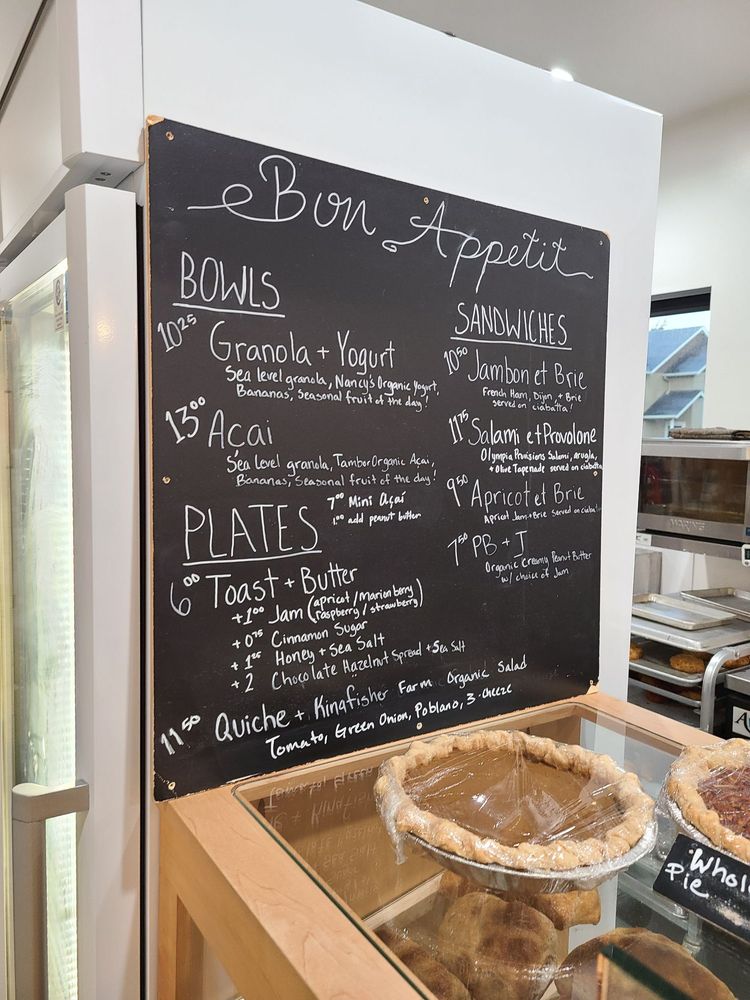 Bon Appetit
BOWLS
10²⁵ Granola + Yogurt
Sea level granola, Nancy's Organic Yogurt,
Bananas, Seasonal fruit of the day!
13⁰⁰ Açai
Sea Level granola, Tambor Organic Açai,
Bananas, Seasonal fruit of the day!
7⁰⁰ Mini Açai
1.⁰⁰ add peanut butter
PLATES
6⁰⁰ Toast + Butter
+1⁰⁰ Jam (apricot/marionberry
raspberry/strawberry)
+0⁷⁵ Cinnamon Sugar
+1 Honey + Sea Salt
+2 Chocolate Hazelnut Spread + Sea Salt
11⁵⁰ Quiche + Kingfisher Farm Organic Salad
Tomato, Green Onion, Poblano, 3-cheeze
SANDWICHES
10⁵⁰ Jambon et Brie
French Ham, Dijon, + Brie
served on ciabatta!
11⁷⁵ Salami et Provolone
Olympia Provisions Salami, arugla,
+ Olive Tapenade served on ciabatta
9⁵⁰ Apricot et Brie
Apricot Jam + Brie served on
7⁵⁰ PB + J
Organic Creamy Peanut Butter
w/ choice of Jam
Whol
Pie